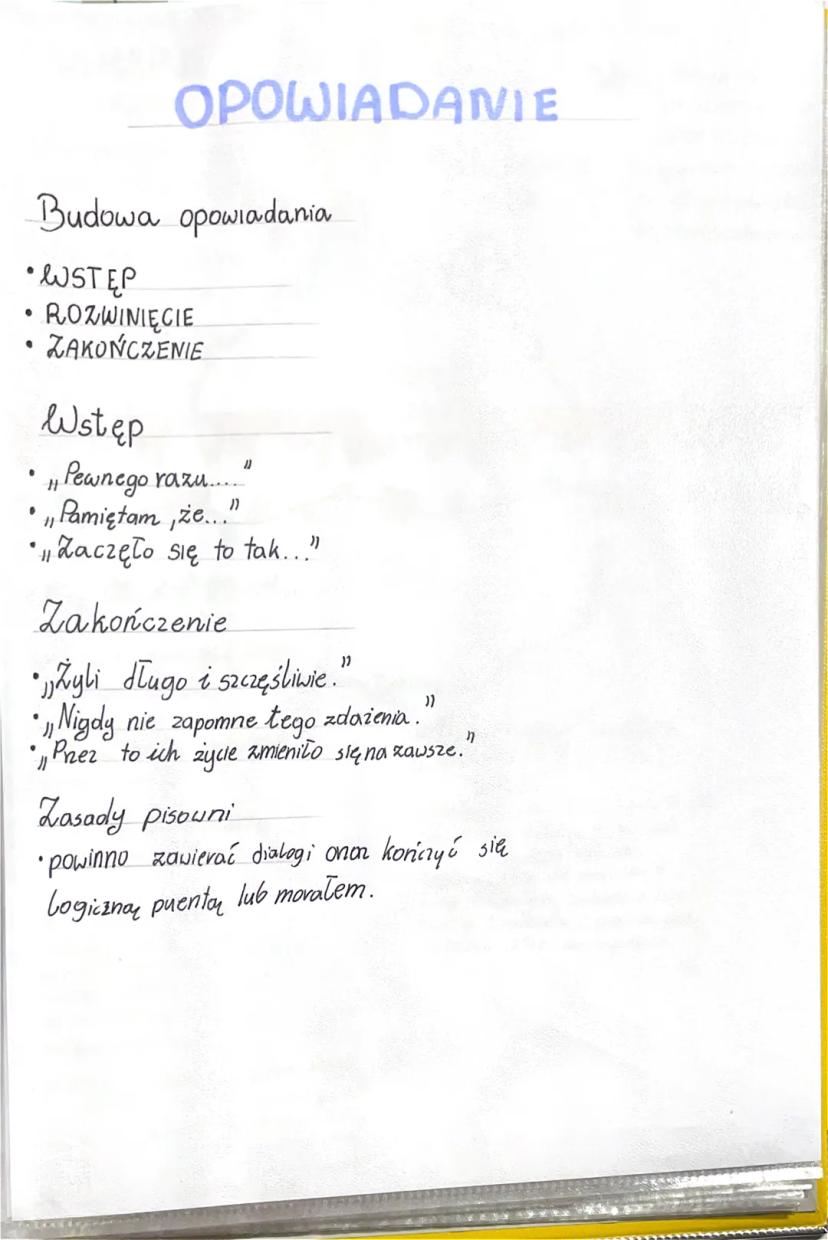 OPOWIADANIE
Budowa opowiadania
• WSTĘP
• ROZWINIĘCIE
• ZAKOŃCZENIE
Wstęp
• „Pewnego razu...."
• „Pamiętam ,że..."
• „Zaczęło się to tak..."
Zakończenie
• „Żyli długo i szczęśliwie."
• „Nigdy nie zapomne tego zdażenia."
• „Przez to ich życie zmieniło się na zawsze."
Zasady pisowni
• powinno zawierać dialogi oraz kończyć się
logiczną puentą lub morałem.